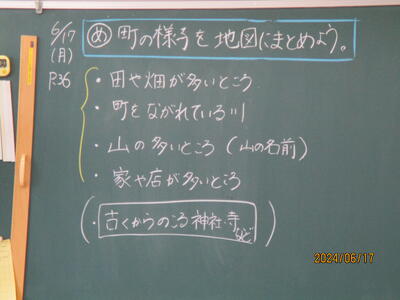 6/17
(月)
P.36
め 町の様子を地図にまとめよう。
・田や畑が多いところ
・町をながれている川
・山の多いところ(山の名前)
・家や店が多いところ
(・古くからのこる神社・寺など)
2024/06/17